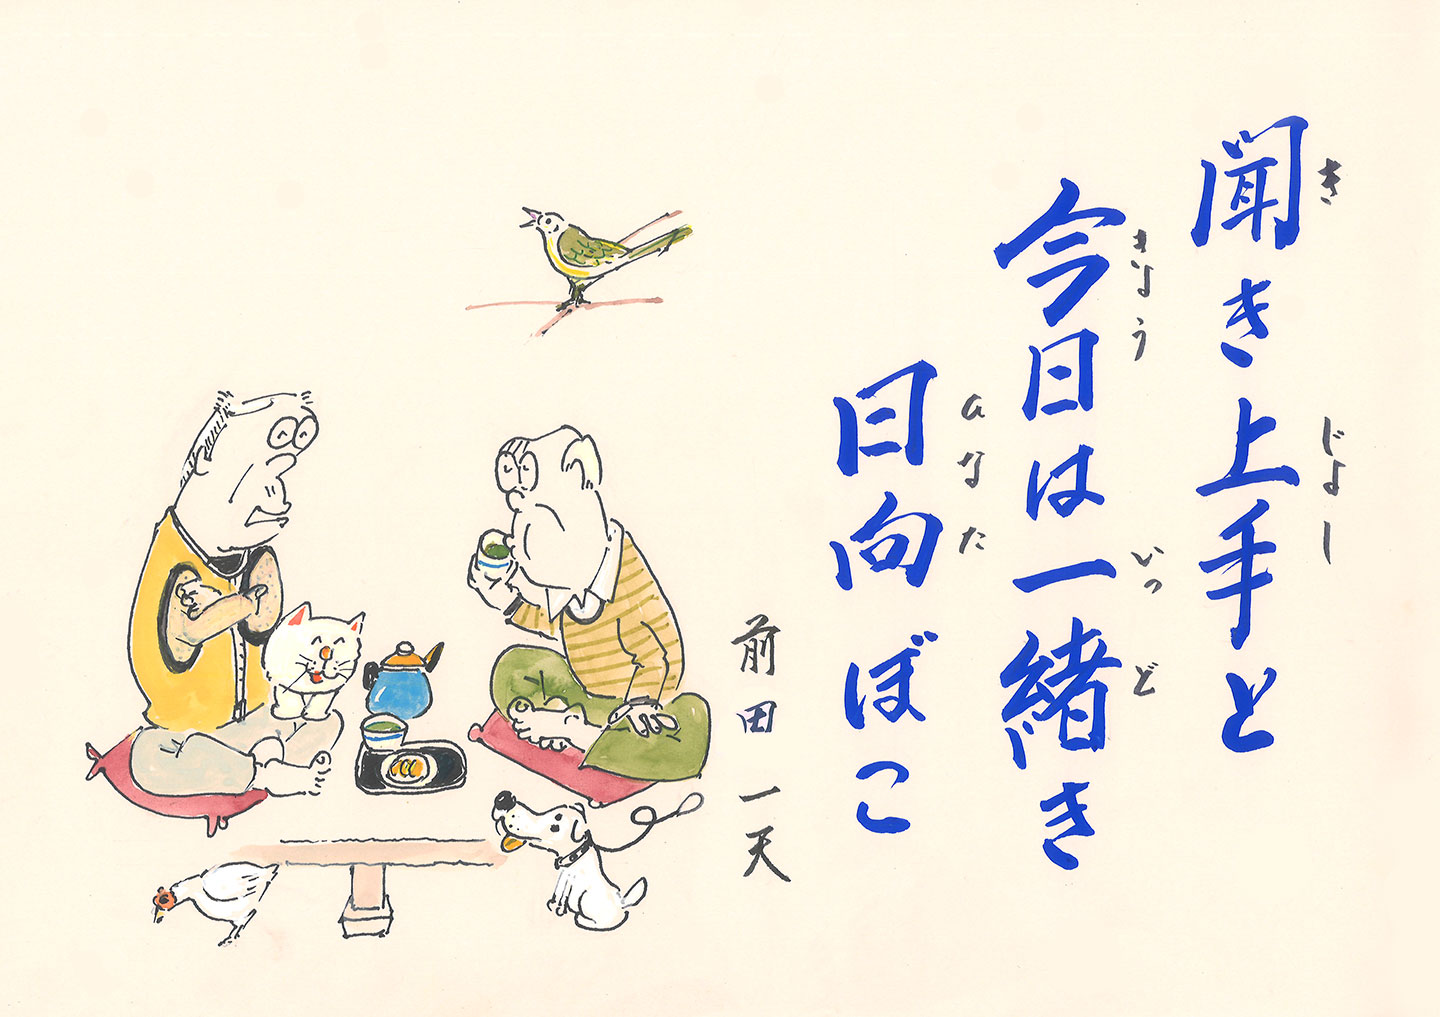 聞き上手と
き じょし
今日は一緒き
きょう いっど
日向ぼこ
ひなた
前田一天